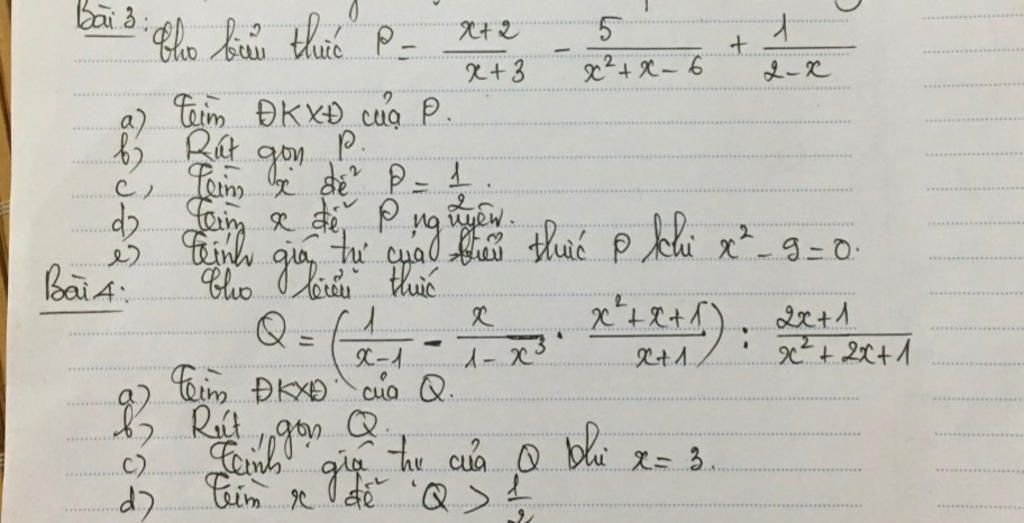 Bài 3: Cho biểu thức P = \frac{x+2}{x+3} - \frac{5}{x²+x-6} + \frac{1}{2-x}
a) Tìm ĐKXĐ của P.
b) Rút gọn P.
c, Tìm x để P = \frac{1}{2}.
d) Tìm x để P nguyên.
e) Tính giá trị của biểu thức P khi x² - 9 = 0.
Bài 4: Cho biểu thức
Q = (\frac{1}{x-1} - \frac{x}{1-x³} . \frac{x²+x+1}{x+1}) : \frac{2x+1}{x²+2x+1}
a) Tìm ĐKXĐ của Q.
b) Rút gọn Q.
c) Tính giá trị của Q khi x = 3.
d) Tìm x để Q > \frac{1}{2}